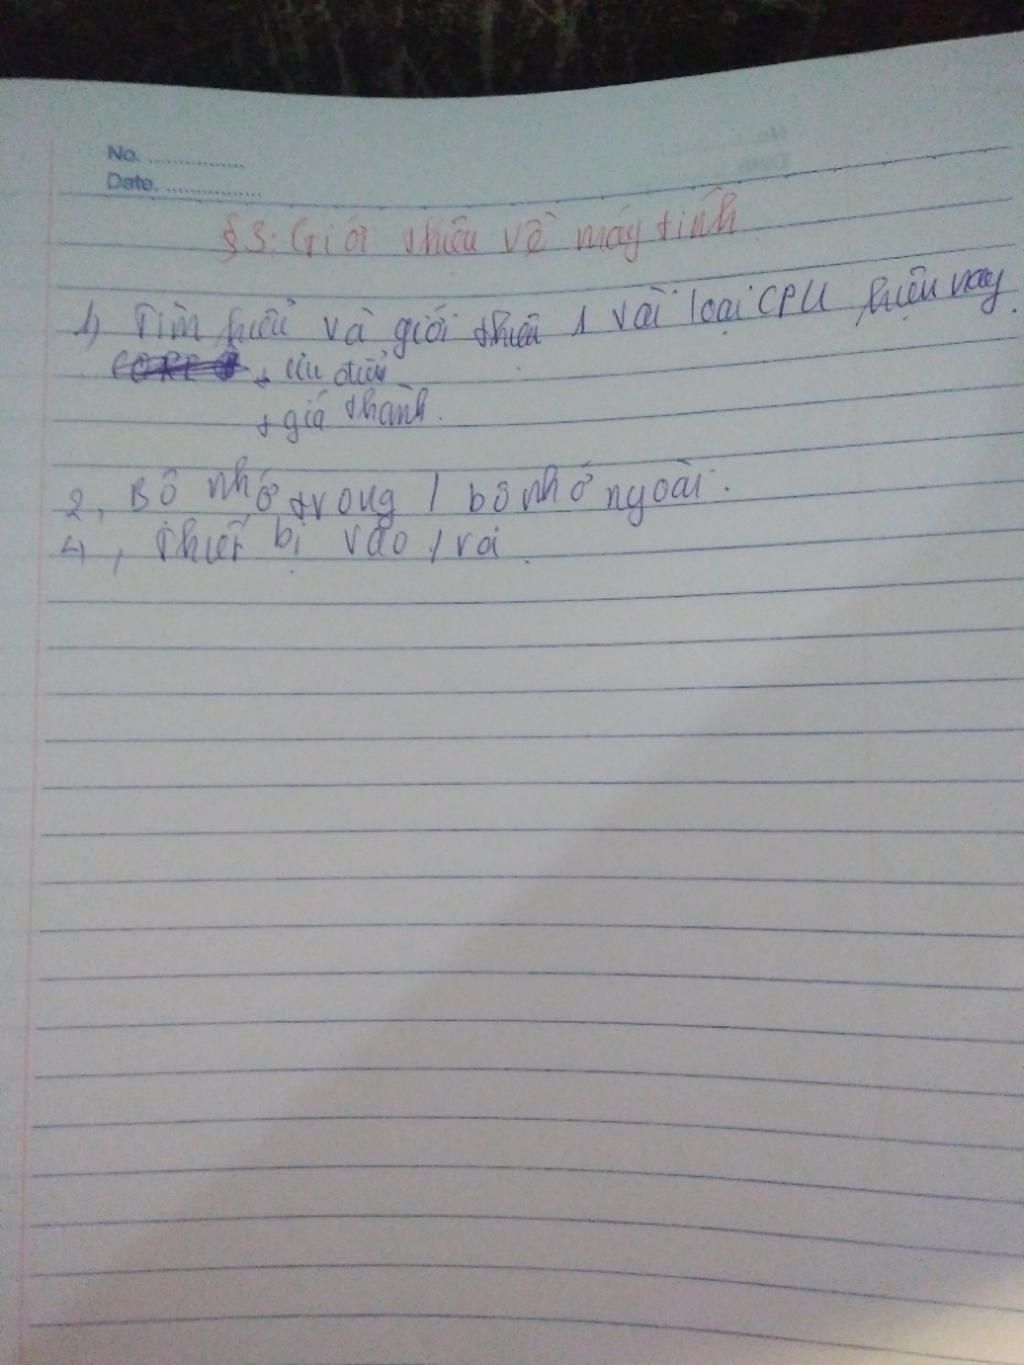 No. ................
Date. ................
§3: Giới thiệu về máy tính
1, Tìm hiểu và giới thiệu 1 vài loại CPU hiện nay.
+ ưu điểm
+ giá thành.
2, Bộ nhớ trong / bộ nhớ ngoài.
4, Thiết bị vào / ra.